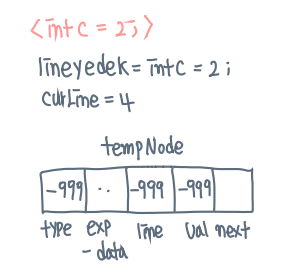 <int c = 2;>
lineyedek = int c = 2;
curLine = 4
tempNode
-999 .. -999 -999
type exp-data line val next